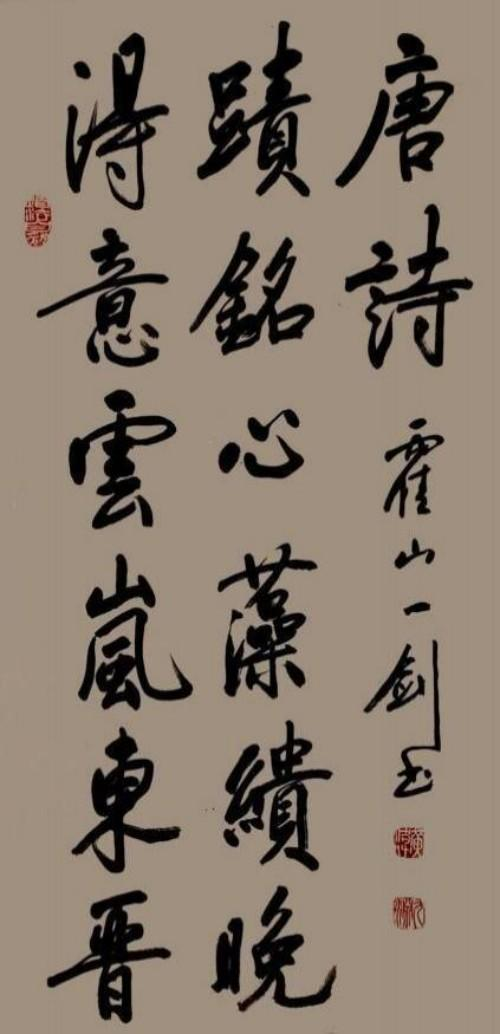 得意雲嵐東晋
蹟銘心藻繢晚
唐詩
霍山一剑书